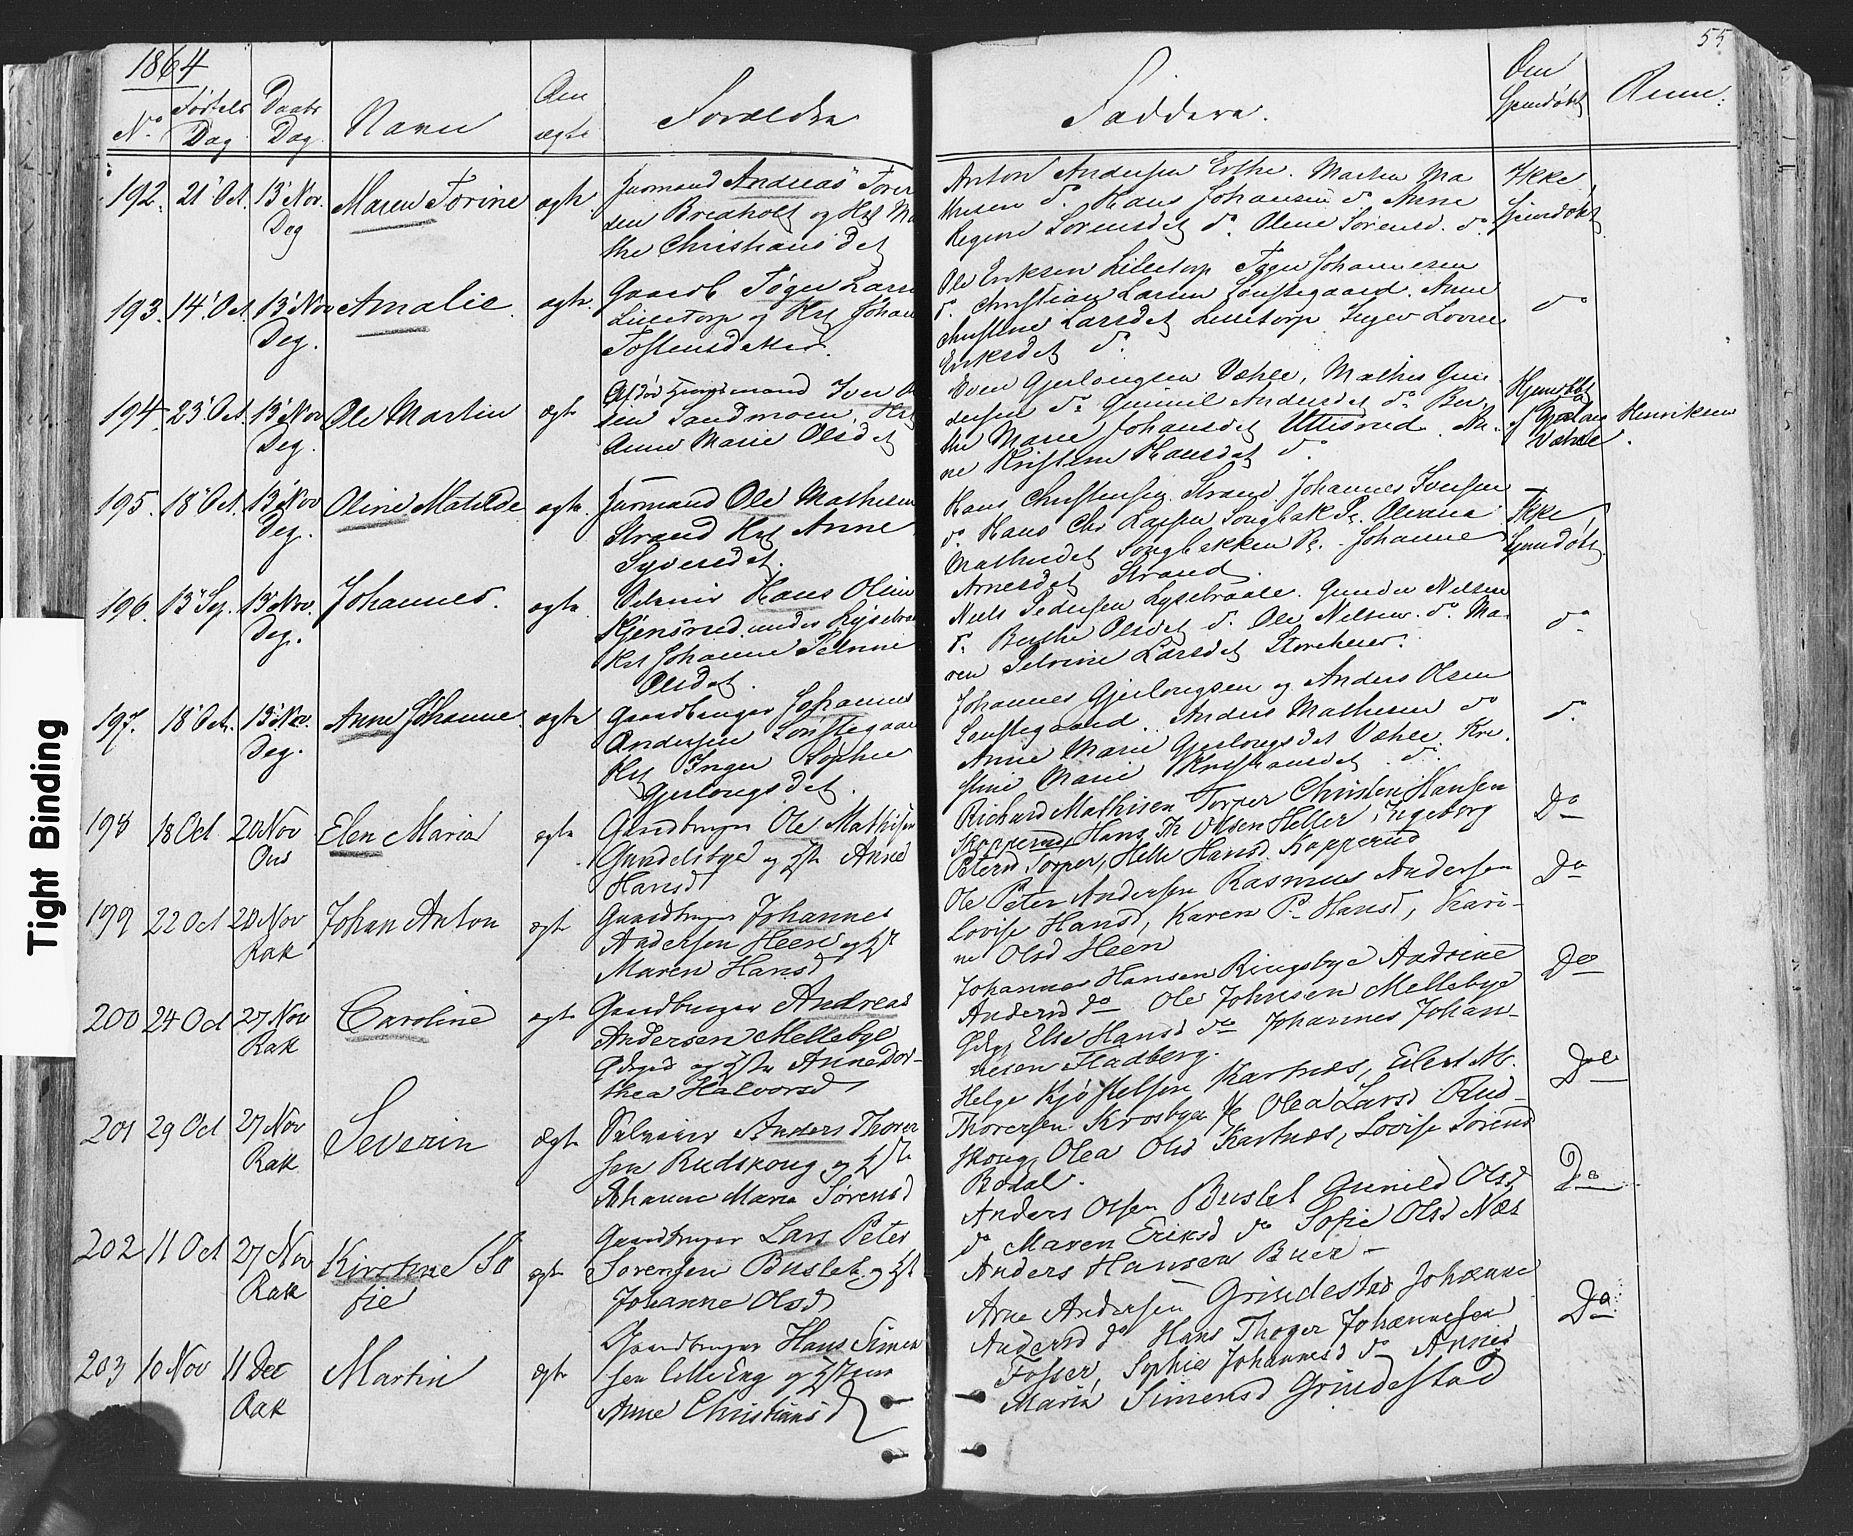 1864
55
No Fødsels Dag Daabs Dag Navn Om ægte Forældre
Faddere. Om Hjemdøbt Anm:
192. 21 Oct. 13 Nov. Dag Maren Torine ægte Husmand Andreas Torer
sen Breaholt og Hst Ma
the Christiansdet
Anton Andersen Mathea Ma
thisen do Hans Johansen do Anne
Regine Sørensdet do Oline Sørensd. do
Ikke
hjemdøbt
193. 14 Oct. 13 Nov Deg. Amalie. ægte. Gaardb Tøger Larse
Lilletorp og Hst Johan
Tostensdatter.
Ole Eriksen Lilletorp Tøger Johannesen
do. Christian Larsen Lonstegaard. Anne
Christine Larsdet Lilletorp Inger Lovise
Eriksdet do
do
194. 23 Oct. 13 Nov Deg. Ole Martin ægte Afdød Iver
sen Sandmoen Hst
Anne Marie Olsdet
Even Gjerlougsen Væhle, Mathis Gun
dersen do Gunnil Andersdet do Ber
the Marie Johansdet Uttisrud. An
ne Kristine Hansdet do
Hjemdøbt
af Gjerloug
Væhle
Henriksen
195. 18 Oct. 13 Nov Deg. Oline Matilde ægte. Husmand Ole Mathisen
Strand Hst Anne
Syversdet.
Hans Christensen Strand Johannes Iversen
do Hans Chr Larsen Songbak
Mathisdet Songbakken Johanne
Arnesdet Strand.
Ikke
hjemdøbt
196. 13 Sep. 13 Nov. Deg. Johannes. ægte. Selveier Hans Olsen
Kjensrud under Lysebraa
Hst Johanne Petrine
Olsdet.
Niels Pedersen Lysebraate. Gunder Nilsen
do. Berthe Olsdet do. Ole Nilsen. do. Ma
ren Petrine Larsdet Storeheer.
do
197. 18 Oct. 13 Nov. Deg. Anne Johanne ægte Gaardbruger Johannes
Andersen Lonstegaar
Hst Inger Sophie
Gjerlougsdet.
Johannes Gjerlougsen og Anders Olsen
Lonstegaard. Anders Mathisen do
Anne Marie Gjerlougsdet Væhle. Kri
stine Marie Kristiansdet do
do
198 18 Oct 20 Nov Ons Elen Maria ægte Gaardbruger Ole Mathisen
Gundelsbye og Hst Anne
Hansd
Richard Mathisen Torper Christen Hansen
Kopperud, Hans Th Olsen Heller, Ingeborg
Petersd Torper, Helle Hansd Kopperud
Do
199 22 Oct 20 Nov Rak Johan Anton ægte Gaardbruger Johannes
Andersen Heen og Hst
Maren Hansd
Ole Peter Andersen Rasmus Andersen
Lovise Hansd, Karen P. Hansd, Kari-
ne Olsd Heen
Do
200 24 Oct 27 Nov Rak Caroline ægte Gaardbruger Andreas
Andersen Mellebye
og Hste Anne Dor-
thea Halvorsd
Johannes Hansen Ringsbye Andrine
Andersd do Ole Johnsen Mellebye
Else Hansd do Johannes Johan-
nesen Fladberg.
Do
201 29 Oct 27 Nov Rak Severin ægte Selveier Anders Thorer
sen Rudskoug og Hste
Johanne Maria Sørensd
Helge Kjøstelsen Kartnæs, Edert M.
Thorersen Krosbye Olea Larsd Rud-
skoug, Olea Olsd Kartnæs, Lovise Sørensd
Rodal.
Do
202 11 Oct 27 Nov Rak Kirstine So
fie ægte Gaardbruger Lars Peter
Sørensen Buslet og Hst
Johanne Olsd
Anders Olsen Buslet Gunild Olsd
do Maren Eriksd do Sofie Olsd Næs
Anders Hansen Buer -
Do
203 10 Nov 11 Dec Rak Martin ægte Gaardbruger Hans Simen
sen Lille Eng og Hstru
Anne Christiansd
Arne Andersen Grindestad Johanne
Andersd do Hans Thoger Johannesen
Fosser, Sophie Johannesd do Anne
Maria Simensd Grindestad
Do
Tight Binding